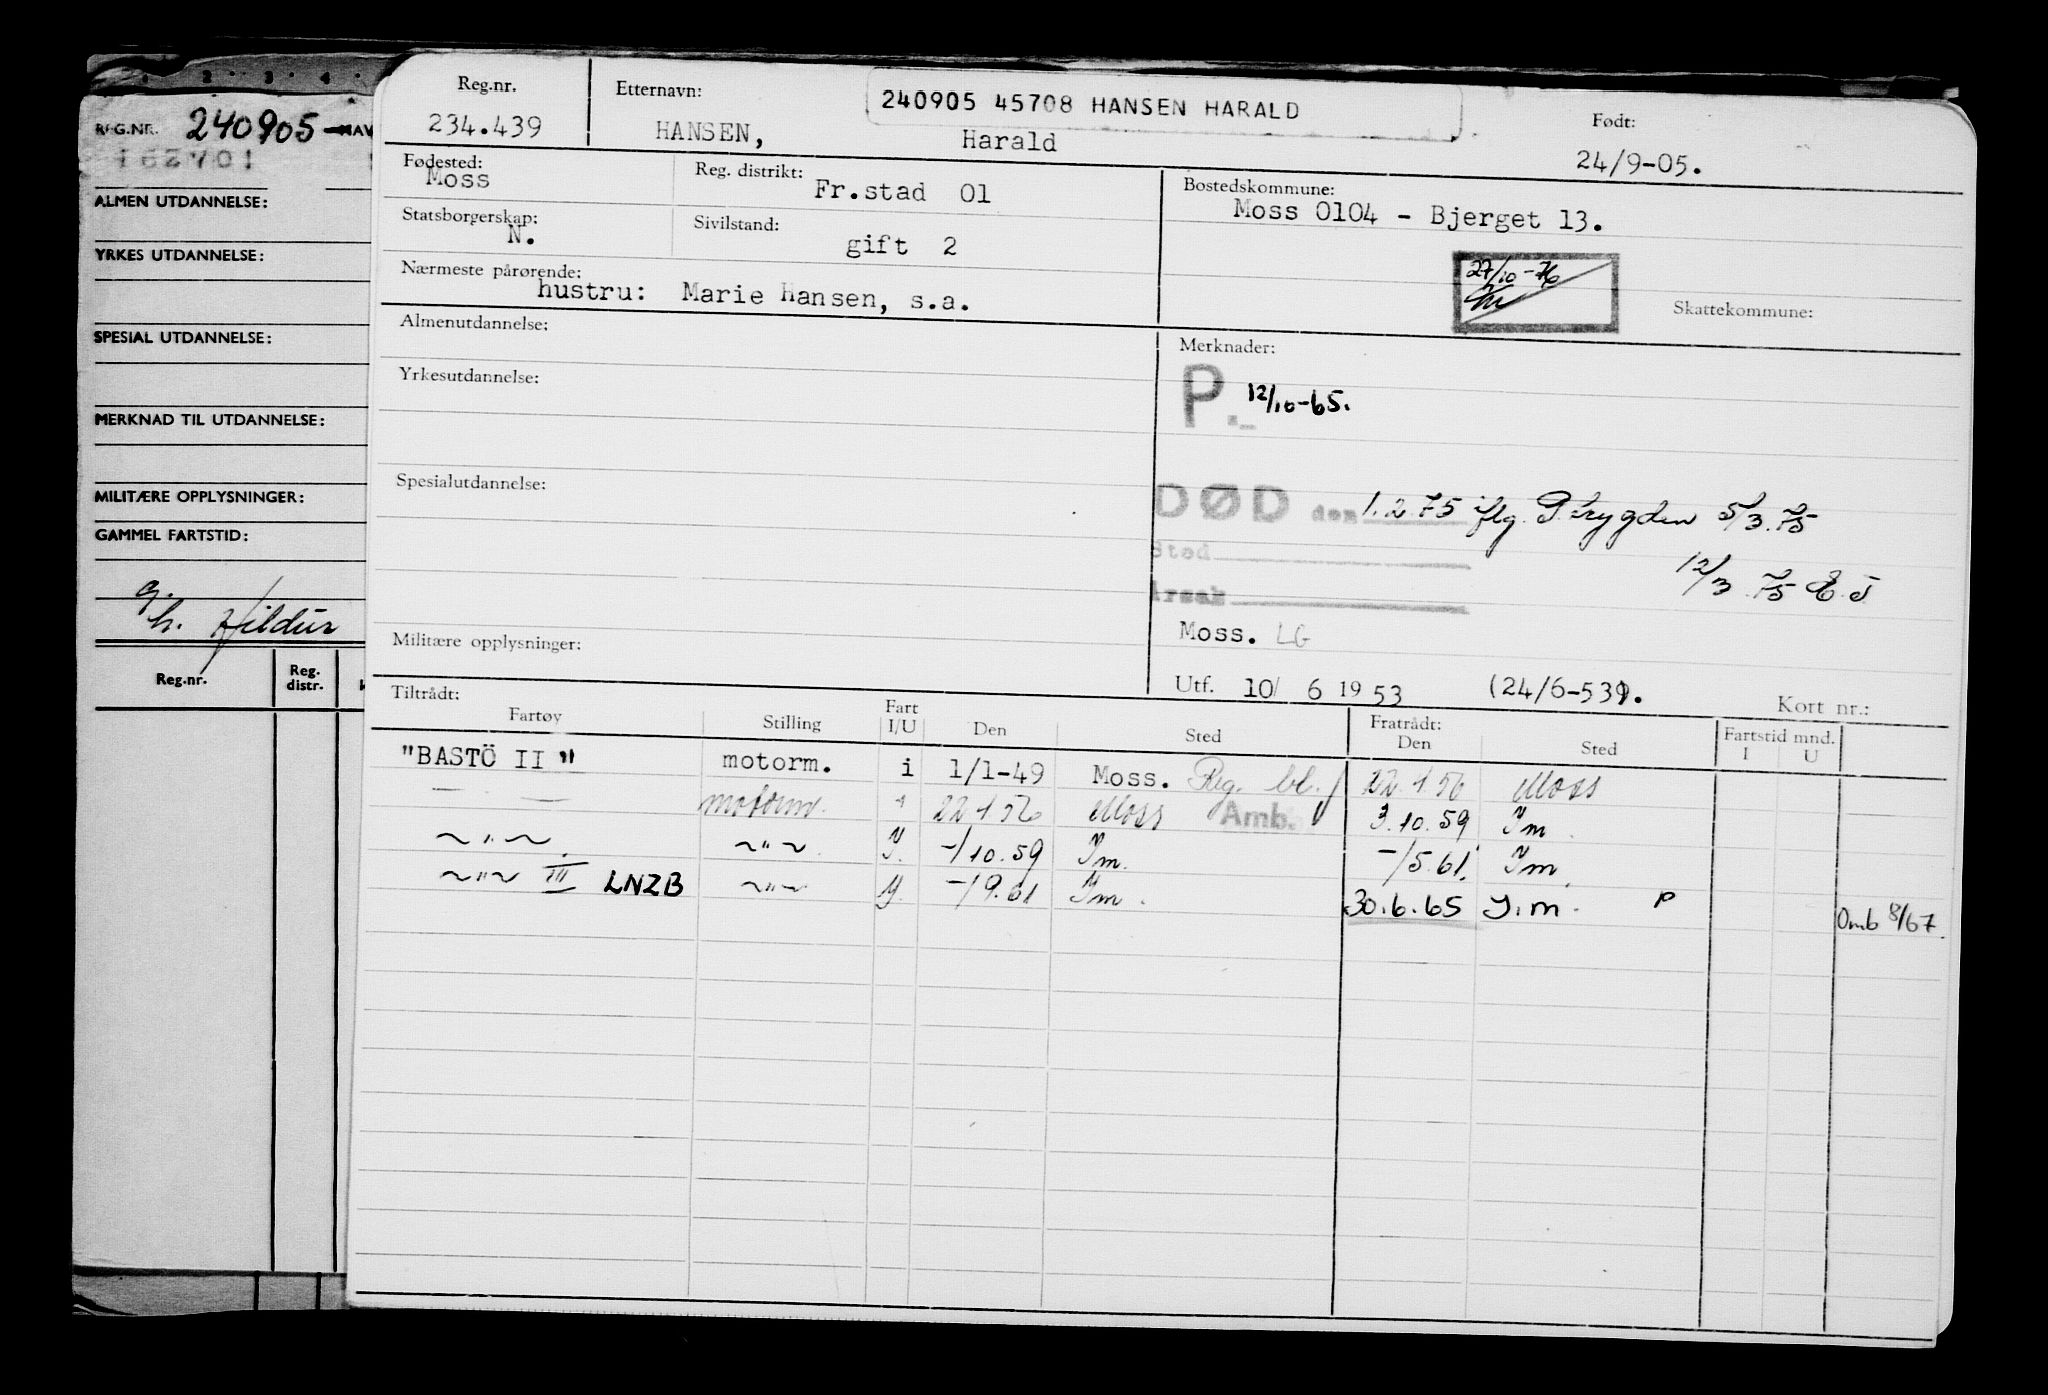 REG.NR. 240905- NAV
162701
ALMEN UTDANNELSE:
YRKES UTDANNELSE:
SPESIAL UTDANNELSE:
MERKNAD TIL UTDANNELSE:
MILITÆRE OPPLYSNINGER:
GAMMEL FARTSTID:
g.
h. Hildur
Reg.nr. Reg. distr.
Reg.nr. Etternavn: 240905 45708 HANSEN HARALD Født:
234.439 HANSEN, Harald 24/9-05.
Fødested: Reg. distrikt: Bostedskommune:
Moss Fr.stad 01 Moss 0104 - Bjerget 13.
Statsborgerskap: Sivilstand:
N. gift 2
27/10-76
Nærmeste pårørende: Skattekommune:
hustru: Marie Hansen, s.a.
Almenutdannelse: Merknader:
Yrkesutdannelse: P. 12/10-65.
Spesialutdannelse: DØD den 1.2.75 iflg. P.trygden 5/3.75
Sted
12/3.75 E.J
Årsak
Militære opplysninger: Moss. LG
Utf. 10/ 6 1953 (24/6-539). Kort nr.:
Tiltrådt: Fratrådt: Fartstid mnd.
Fartøy Stilling Fart I/U Den Sted Den Sted I U
"BASTÖ II" motorm. i 1/1-49 Moss. Reg. bl. 22.1 56 Moss
— — motorm. " 22 1 56 Moss Amb. 3.10.59 Im.
~"~. ~"~. I. -/10.59 Im. -/5.61. Im.
~"~ III LNZB ~"~ I. -/9.61 Im. 30.6.65 I.m. P Omb 8/67.